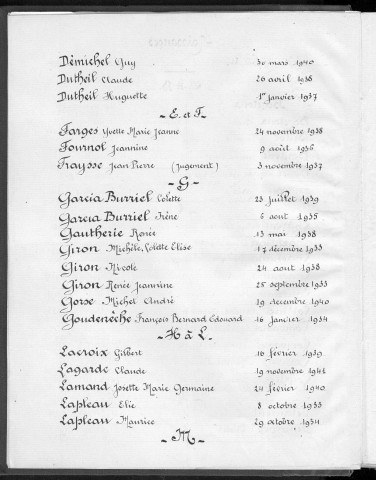 Démichel Guy 30 mars 1940
Dutheil Claude 26 avril 1938
Dutheil Huguette 1er janvier 1937
- E. et F -
Farges Yvette Marie Jeanne 24 novembre 1938
Fournol Jeannine 9 août 1936
Fraysse Jean Pierre (Jugement) 3 novembre 1937
- G -
Garcia Burriel Colette 23 juillet 1939
Garcia Burriel Irène 6 aout 1935
Gautherie Renée 13 mai 1938
Giron Michèle, Colette Elise 17 décembre 1933
Giron Nicole 24 aout 1938
Giron Renée Jeannine 25 septembre 1933
Gorse Michel André 19 décembre 1940
Goudenèche François Bernard Edouard 16 janvier 1934
- H à L. -
Lacroix Gilbert 16 février 1939
Lagarde Claude 19 novembre 1941
Lamand Josette Marie Germaine 24 février 1940
Lapleau Elie 8 octobre 1933
Lapleau Maurice 29 octobre 1934
- M -